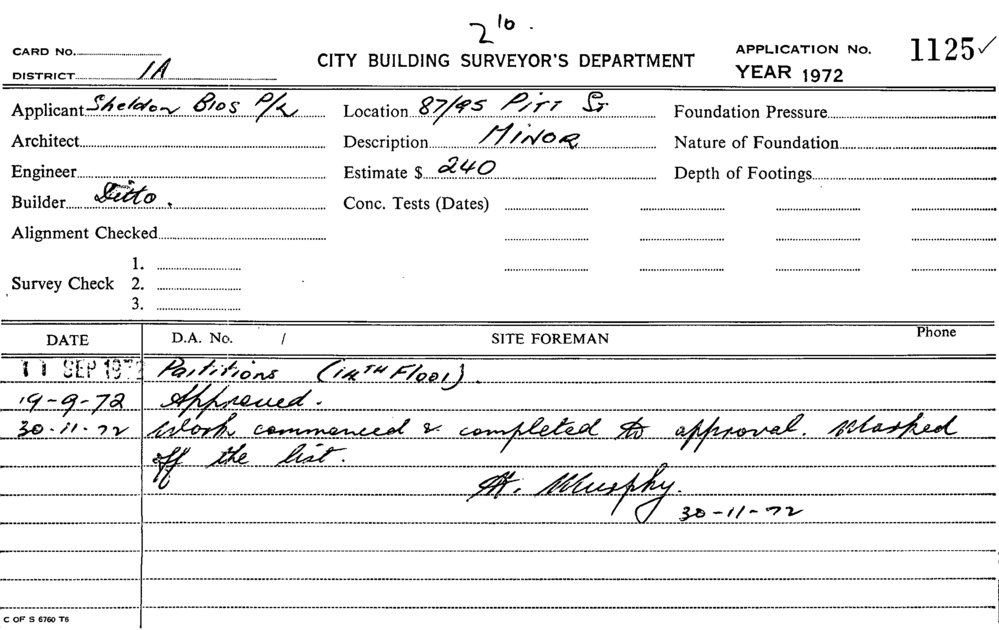 2 10.
CARD No.
DISTRICT 1A
CITY BUILDING SURVEYOR'S DEPARTMENT
APPLICATION No. 1125 ✓
YEAR 1972
Applicant Sheldon Bros P/L
Location 87/95 Pitt St
Foundation Pressure
Architect
Description MINOR
Nature of Foundation
Engineer
Estimate $ 240
Depth of Footings
Builder Ditto.
Conc. Tests (Dates)
Alignment Checked
Survey Check
1.
2.
3.
DATE D.A. No. / SITE FOREMAN Phone
11 SEP 1972 Partitions (14TH Floor).
19-9-72 Approved.
30-11-72 Work commenced & completed to approval. Marked
off the list.
H. Murphy.
30-11-72
C OF S 6760 T6